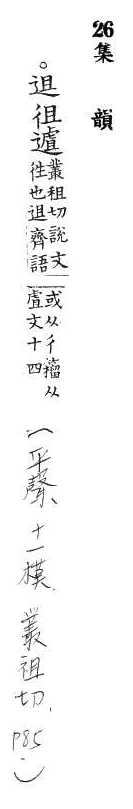 26 集 韻
。䢐徂𨖆 叢祖切說文徃也䢐齊語或从彳籀从虘文十四
(平聲、十一模、叢祖切. P85.)